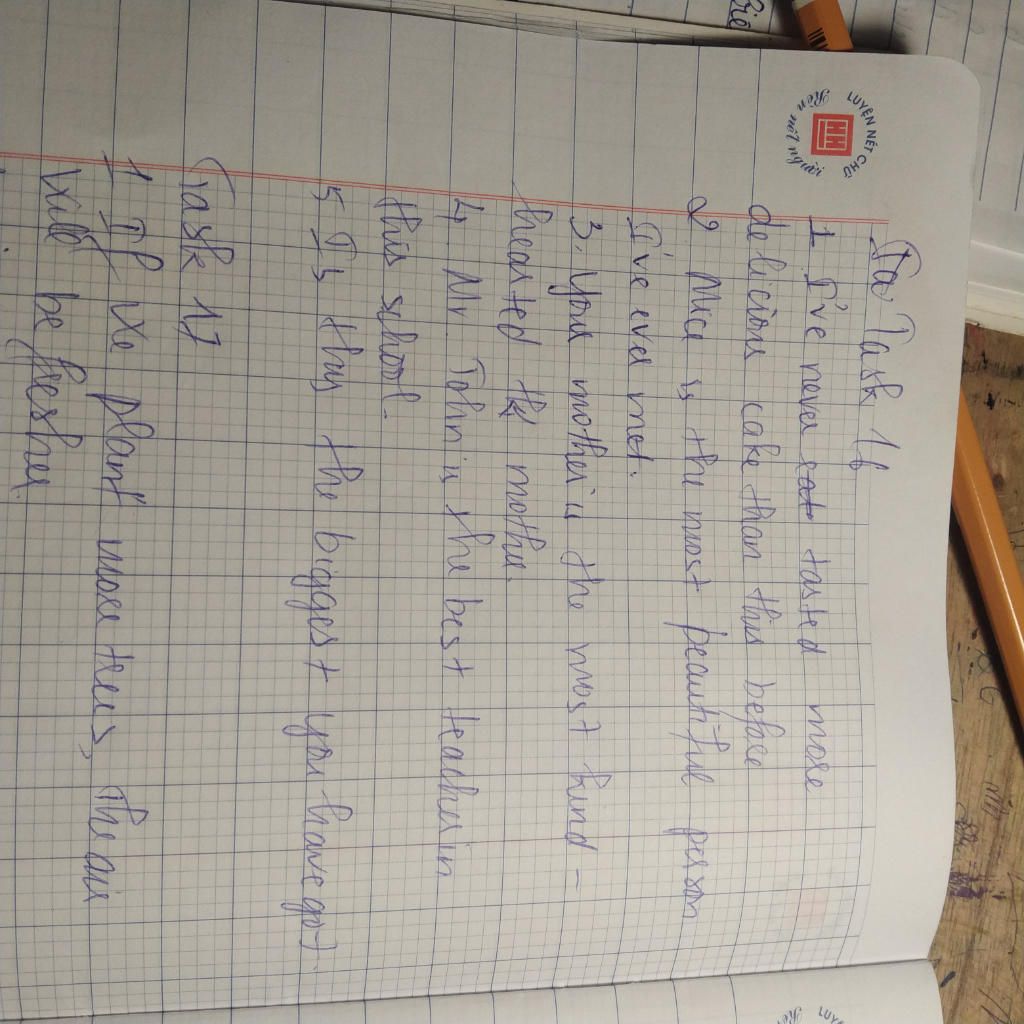 LUYỆN NÉT CHỮ
Rèn nết người
HH
Task 16
1 I've never eat tasted more
delicious cake than this before
2 Mica is the most beautiful person
I've ever met.
3. Your mother is the most kind-
hearted mother.
4 Mr. John is the best teacher in
this school.
5 Is this the biggest you have got
Task 17
1 If we plant more trees, the air
will be fresher.